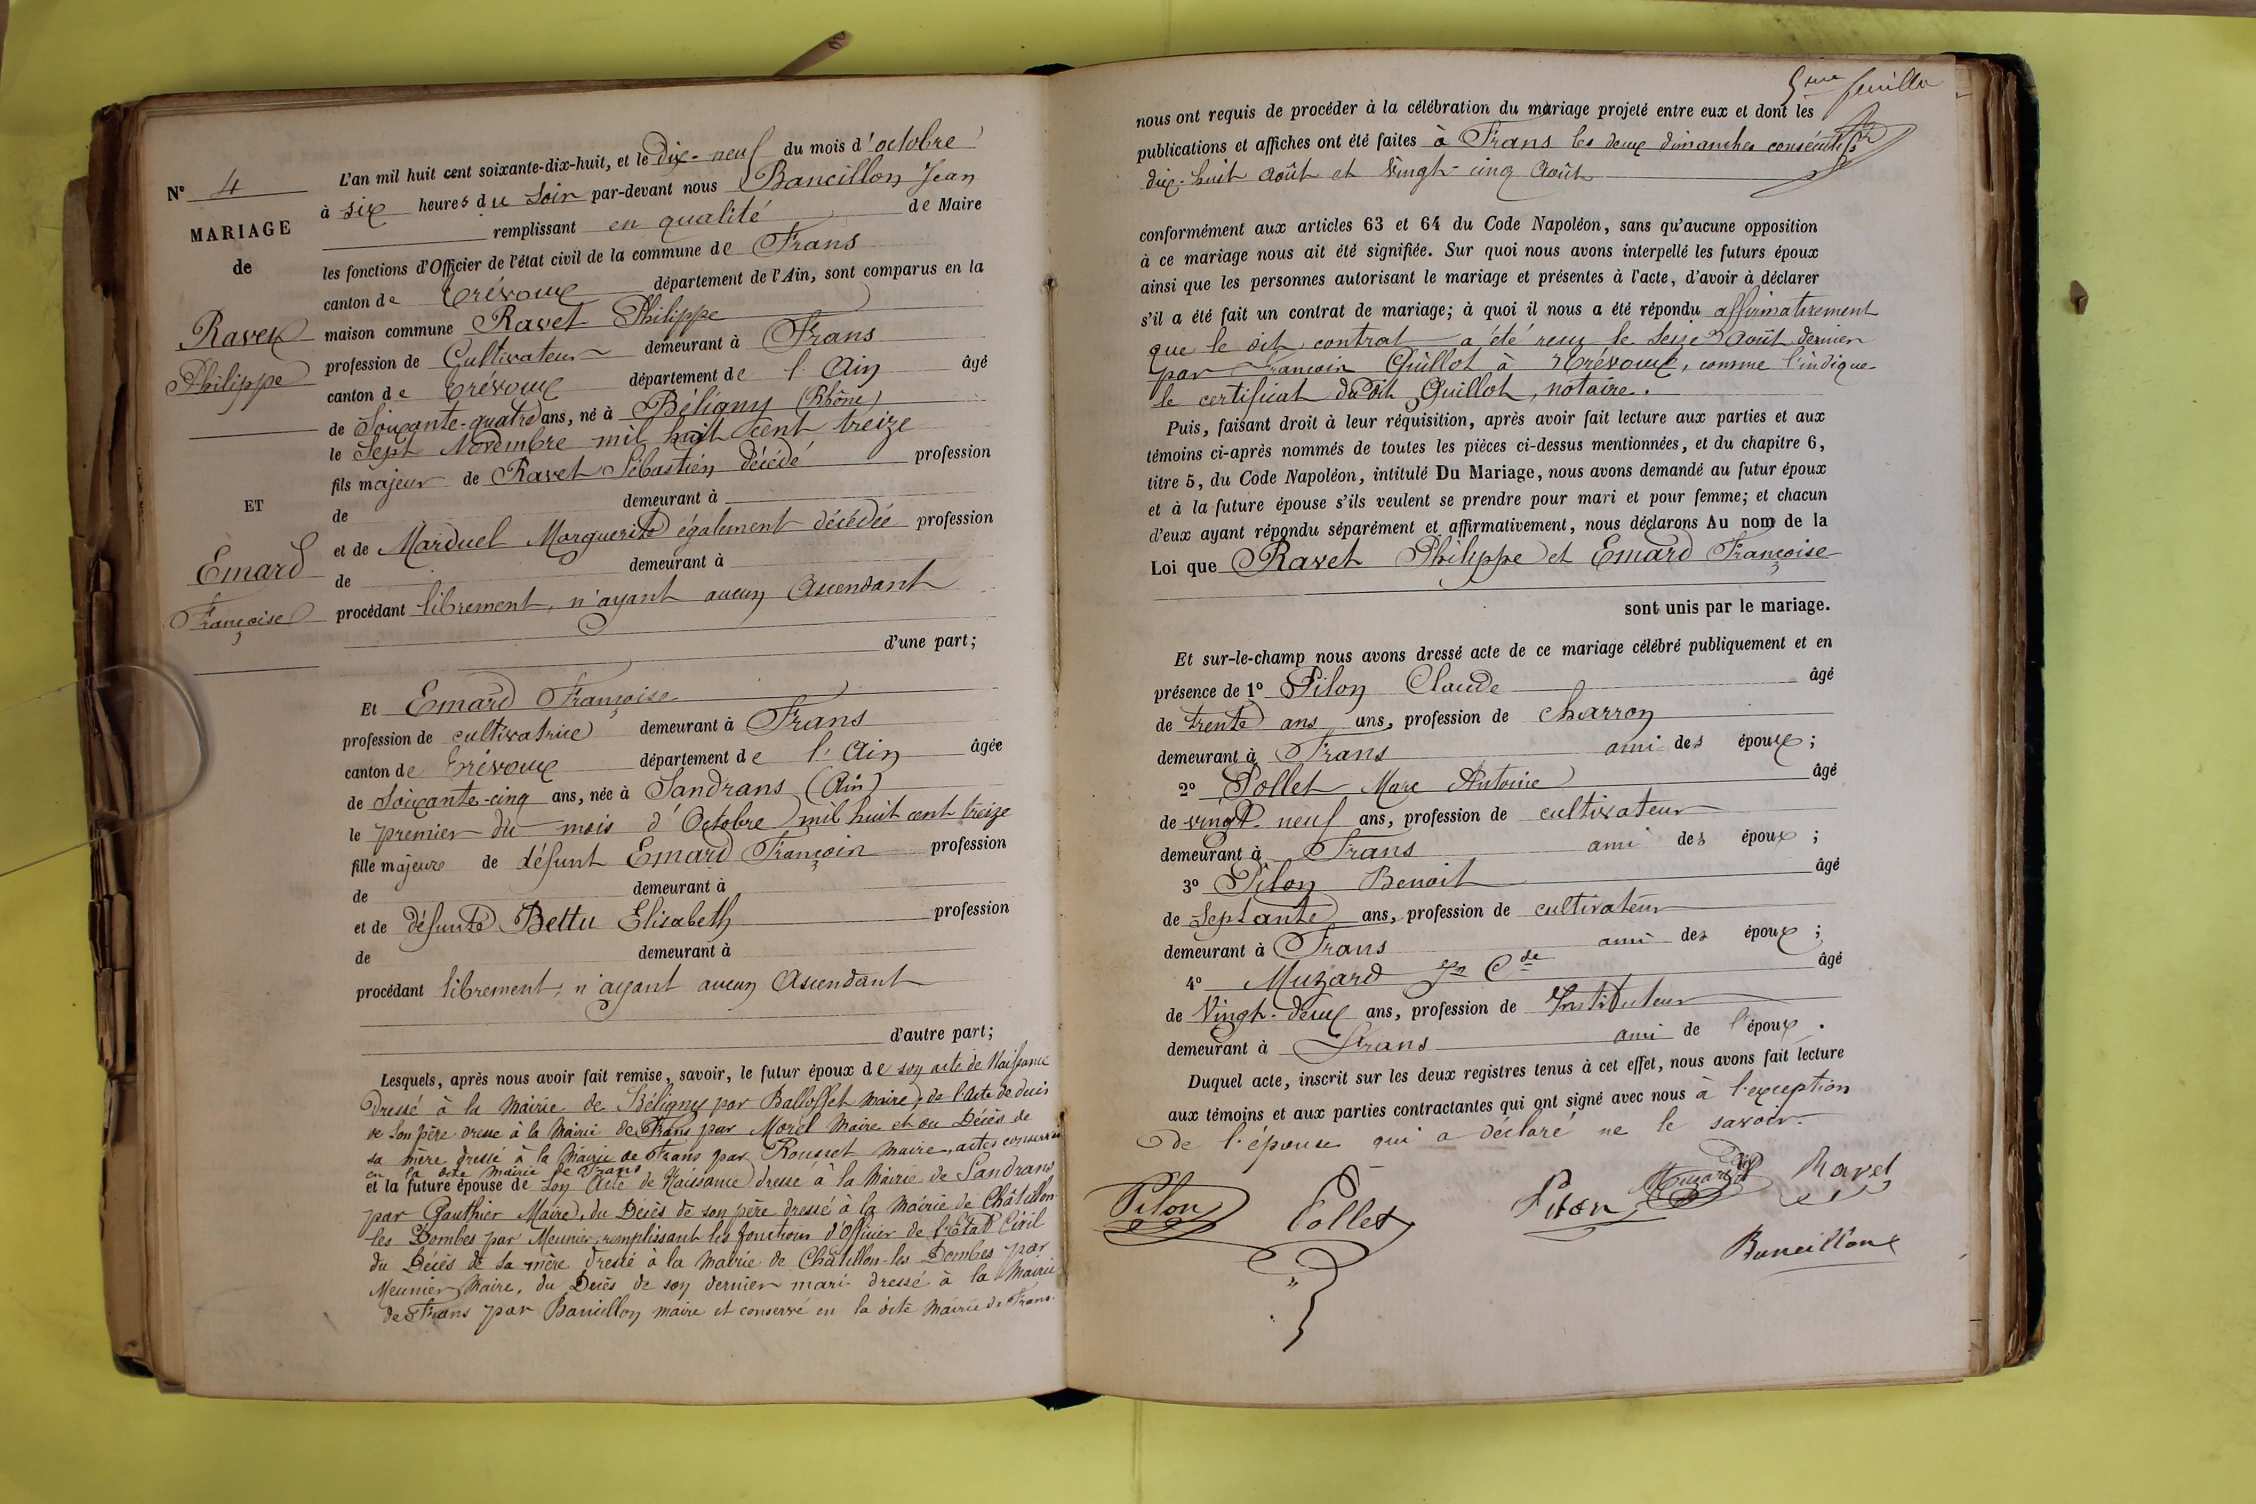 N° 4
MARIAGE
de
Ravet
Philippe
ET
Emard
Françoise
L'an mil huit cent soixante-dix-huit, et le dix-neuf du mois d'octobre
à six heures du soir par-devant nous Bancillon Jean
remplissant en qualité de Maire
les fonctions d'Officier de l'état civil de la commune de Frans
canton de Trévoux département de l'Ain, sont comparus en la
maison commune Ravet Philippe
profession de Cultivateur demeurant à Frans
canton de Trévoux département de l'Ain âgé
de Soixante-quatre ans, né à Béligny (Rhône)
le Sept Novembre mil huit cent treize
fils majeur de Ravet Sébastien décédé profession
de demeurant à
et de Marduel Marguerite également décédée profession
de demeurant à
procédant librement, n'ayant aucun Ascendant
d'une part;
Et Emard Françoise
profession de cultivatrice demeurant à Frans
canton de Trévoux département de l'Ain âgée
de Soixante-cinq ans, née à Sandrans (Ain)
le premier du mois d'Octobre mil huit cent treize
fille majeure de défunt Emard François profession
de demeurant à
et de défunte Bettu Elisabeth profession
de demeurant à
procédant librement, n'ayant aucun Ascendant
d'autre part;
Lesquels, après nous avoir fait remise, savoir, le futur époux de son acte de Naissance
dressé à la Mairie de Béligny par Balloffet maire, de l'Acte de décès
de son père dressé à la Mairie de Frans par Morel Maire et du Décès de
sa mère dressé à la Mairie de Frans par Rousset maire, actes conservés
en la dite Mairie de Frans
et la future épouse de son Acte de Naissance dressé à la Mairie de Sandrans
par Gauthier Maire, du Décès de son père dressé à la Mairie de Châtillon
les Dombes par Meunier remplissant les fonctions d'Officier de l'Etat Civil
du Décès de sa mère dressé à la Mairie de Châtillon-les Dombes par
Meunier Maire, du Décès de son dernier mari dressé à la Mairie
de Frans par Bancillon maire et conservé en la dite Mairie de Frans.
5ème feuille
nous ont requis de procéder à la célébration du mariage projeté entre eux et dont les
publications et affiches ont été faites à Frans les deux dimanches consécutifs
dix-huit Août et Vingt-cinq Août
conformément aux articles 63 et 64 du Code Napoléon, sans qu'aucune opposition
à ce mariage nous ait été signifiée. Sur quoi nous avons interpellé les futurs époux
ainsi que les personnes autorisant le mariage et présentes à l'acte, d'avoir à déclarer
s'il a été fait un contrat de mariage; à quoi il nous a été répondu affirmativement
que le dit contrat a été reçu le Seize Août dernier
par François Guillot à Trévoux, comme l'indique
le certificat du dit Guillot, notaire.
Puis, faisant droit à leur réquisition, après avoir fait lecture aux parties et aux
témoins ci-après nommés de toutes les pièces ci-dessus mentionnées, et du chapitre 6,
titre 5, du Code Napoléon, intitulé Du Mariage, nous avons demandé au futur époux
et à la future épouse s'ils veulent se prendre pour mari et pour femme; et chacun
d'eux ayant répondu séparément et affirmativement, nous déclarons Au nom de la
Loi que Ravet Philippe et Emard Françoise
sont unis par le mariage.
Et sur-le-champ nous avons dressé acte de ce mariage célébré publiquement et en
présence de 1° Pilon Claude âgé
de trente ans ans, profession de charron
demeurant à Frans ami des époux;
2° Pollet Marc Antoine âgé
de vingt-neuf ans, profession de cultivateur
demeurant à Frans ami des époux;
3° Pilon Benoit âgé
de Septante ans, profession de cultivateur
demeurant à Frans ami des époux;
4° Muzard Jn Cde âgé
de Vingt-deux ans, profession de Instituteur
demeurant à Frans ami de l'époux.
Duquel acte, inscrit sur les deux registres tenus à cet effet, nous avons fait lecture
aux témoins et aux parties contractantes qui ont signé avec nous à l'exception
de l'épouse qui a déclaré ne le savoir.
Pilon Pollet Piton Muzard Ravet
Bancillon